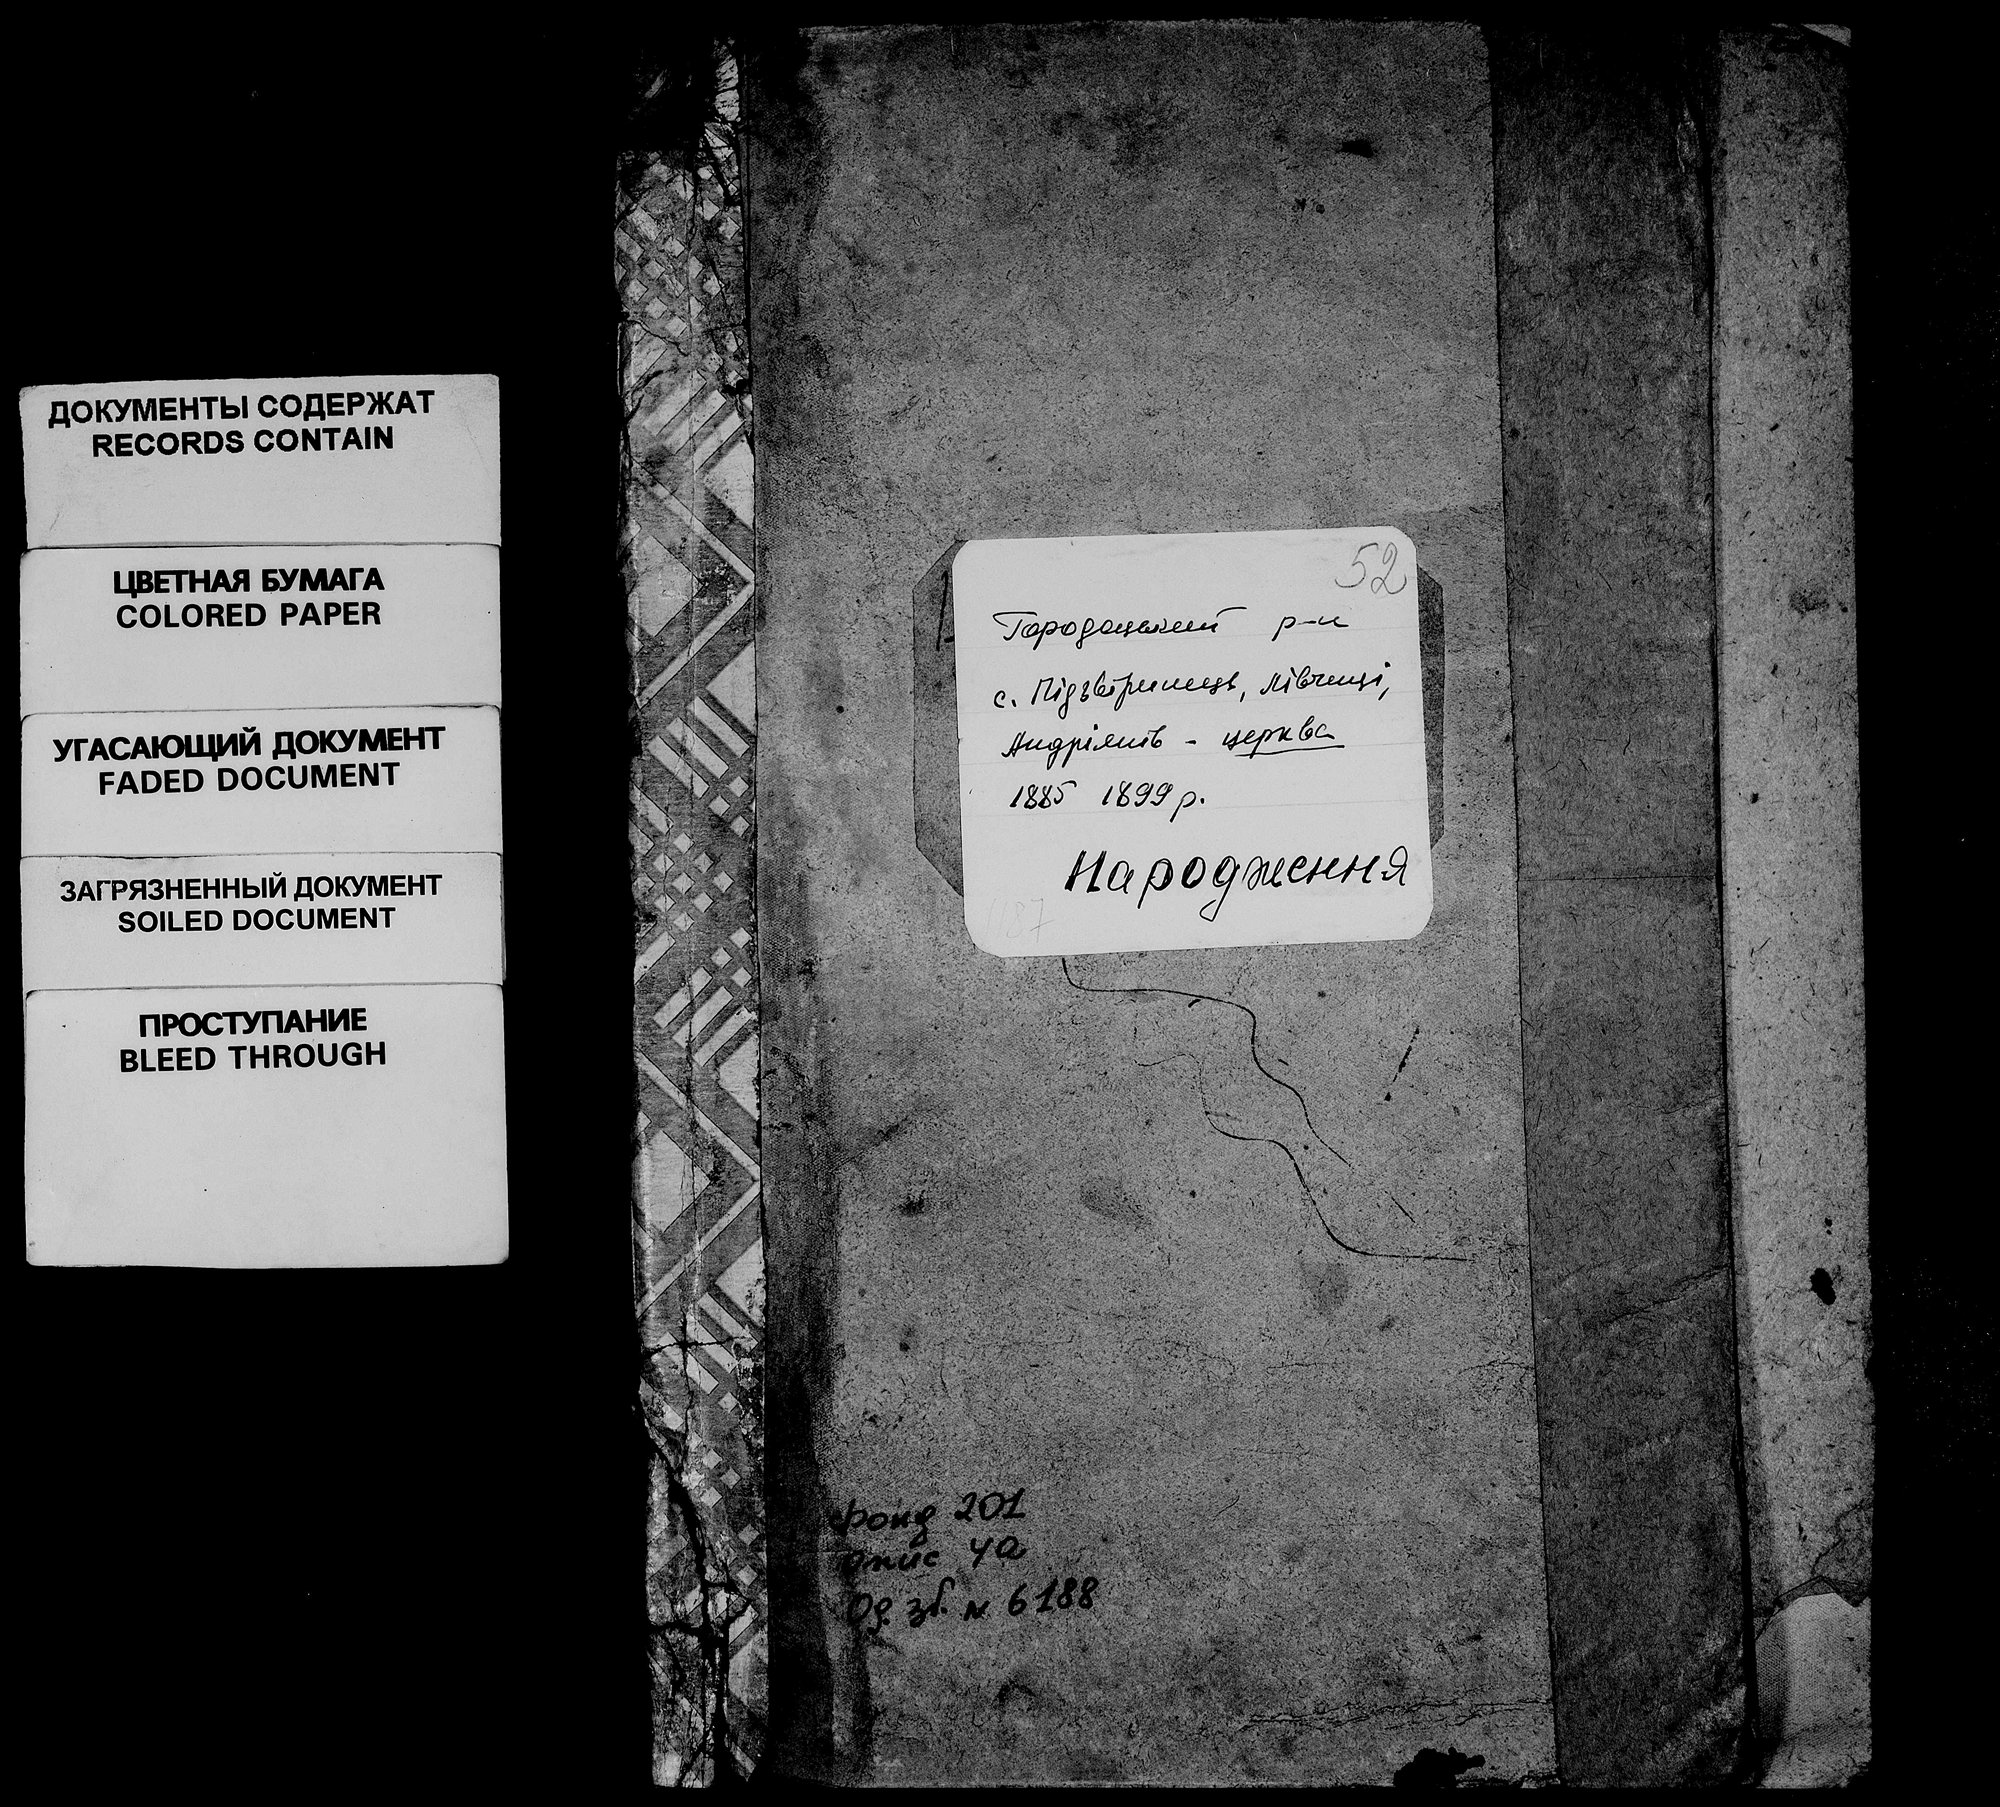 ДОКУМЕНТЫ СОДЕРЖАТ
RECORDS CONTAIN
ЦВЕТНАЯ БУМАГА
COLORED PAPER
УГАСАЮЩИЙ ДОКУМЕНТ
FADED DOCUMENT
ЗАГРЯЗНЕННЫЙ ДОКУМЕНТ
SOILED DOCUMENT
ПРОСТУПАНИЕ
BLEED THROUGH
52
Городоцький р-н
с. Підзвіринець, Лівчиці,
Андріянів - церква
1885 1899 р.
Народження
Фонд 201
опис 4а
Од. зб. № 6188